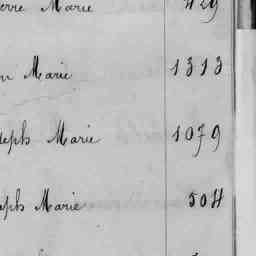 erre Marie 429
n Marie 1313
seph Marie 1079
seph Marie 504